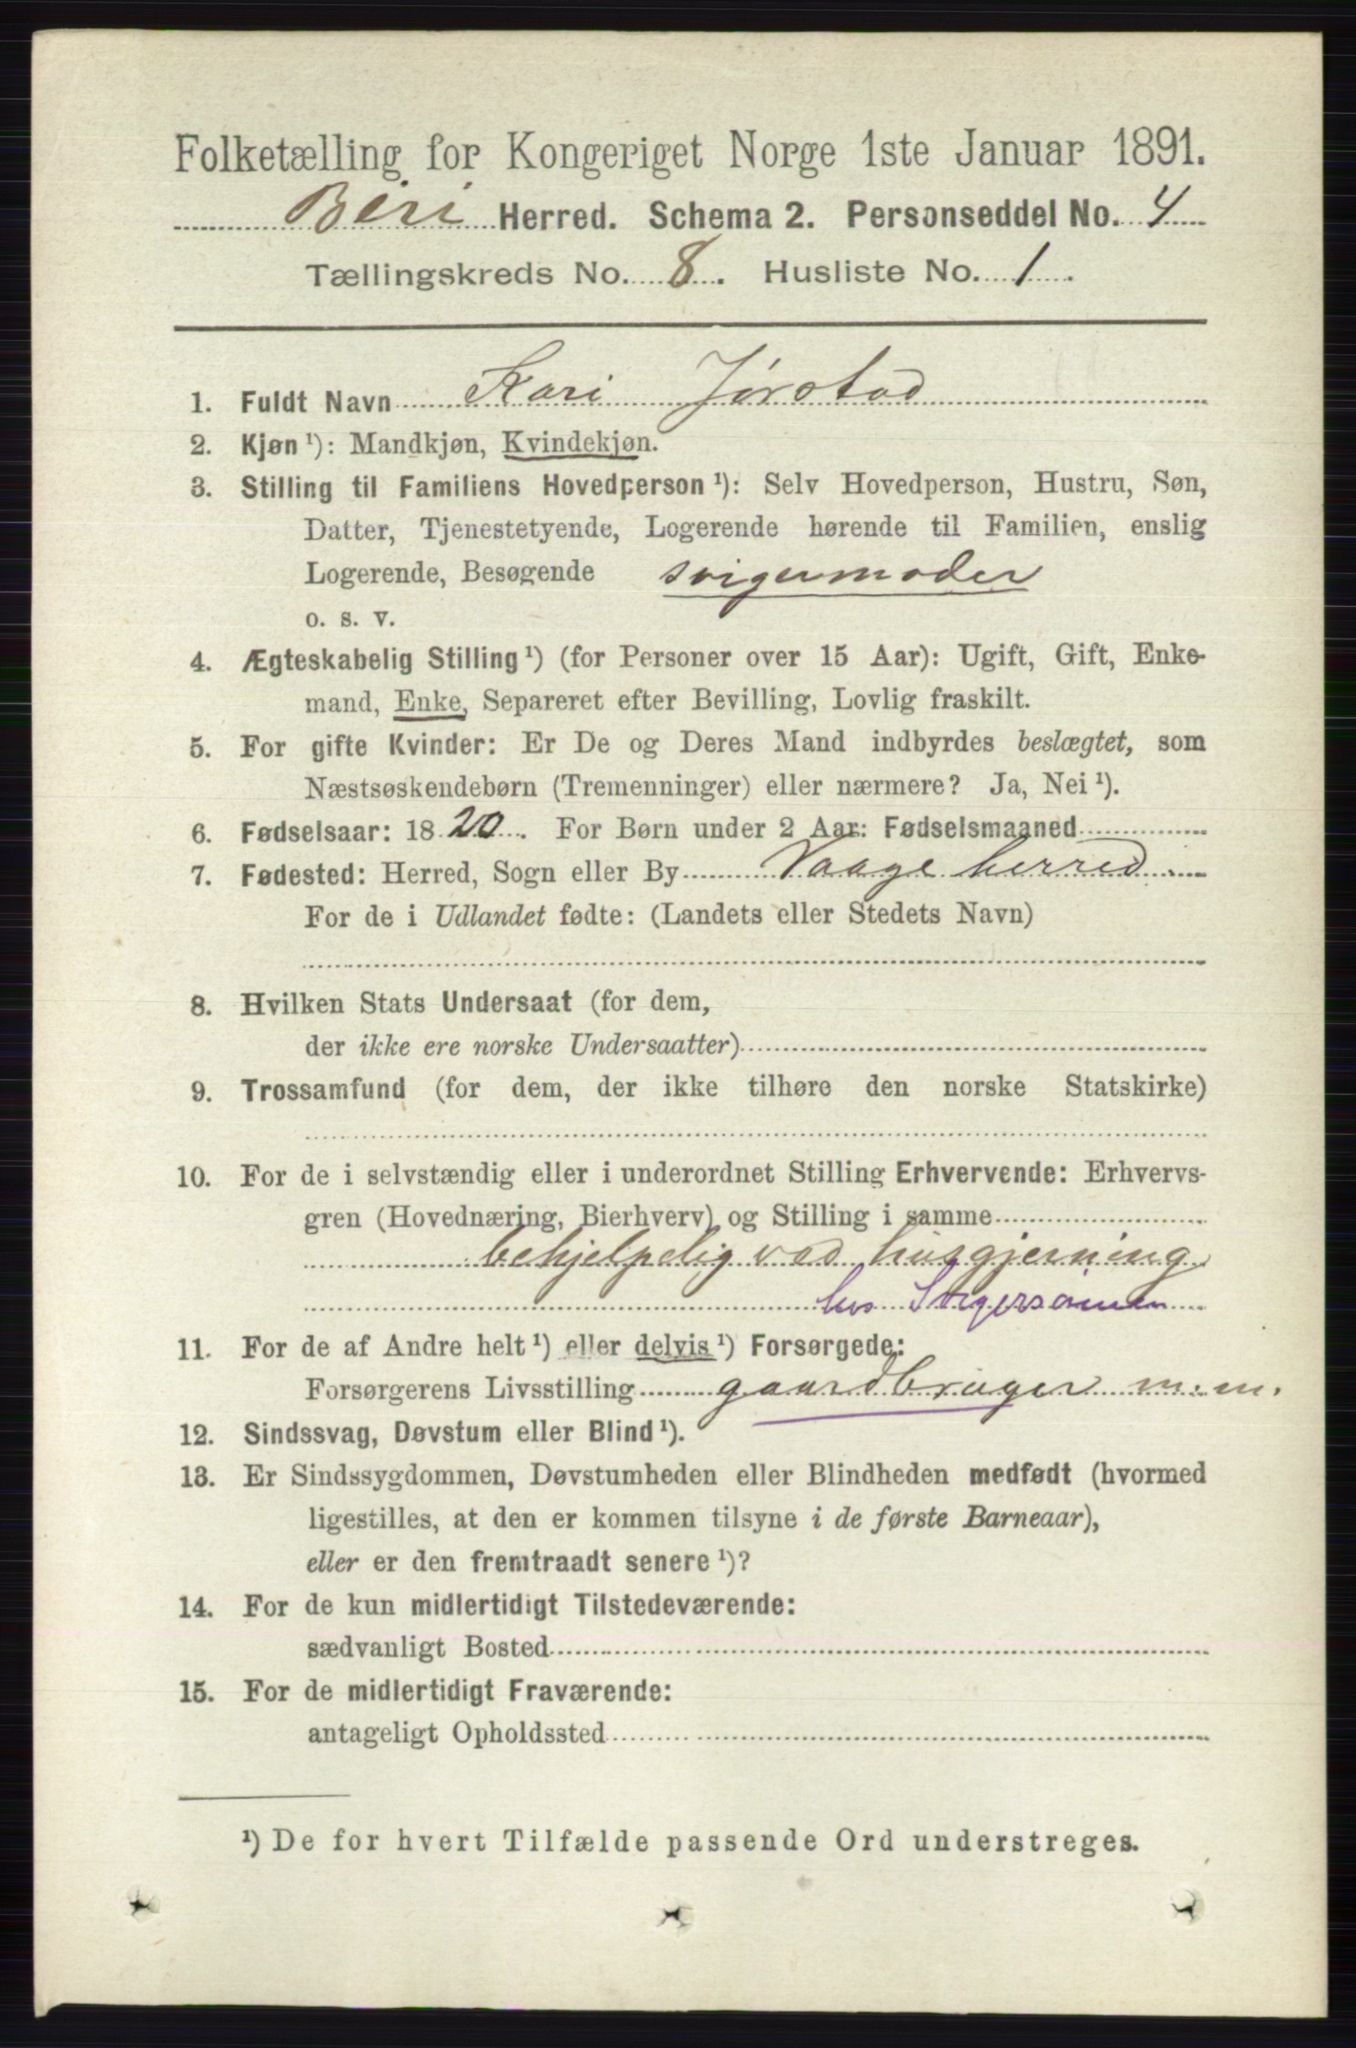 Folketælling for Kongeriget Norge 1ste Januar 1891.
Biri Herred. Schema 2. Personseddel No. 4
Tællingskreds No. 8. Husliste No. 1.
1. Fuldt Navn Kari Jørstad
2. Kjøn ¹): Mandkjøn, Kvindekjøn.
3. Stilling til Familiens Hovedperson ¹): Selv Hovedperson, Hustru, Søn,
Datter, Tjenestetyende, Logerende hørende til Familien, enslig
Logerende, Besøgende svigermoder
o. s. v.
4. Ægteskabelig Stilling ¹) (for Personer over 15 Aar): Ugift, Gift, Enke-
mand, Enke, Separeret efter Bevilling, Lovlig fraskilt.
5. For gifte Kvinder: Er De og Deres Mand indbyrdes beslægtet, som
Næstsøskendebørn (Tremenninger) eller nærmere? Ja, Nei ¹).
6. Fødselsaar: 1820. For Børn under 2 Aar: Fødselsmaaned
7. Fødested: Herred, Sogn eller By Vaage herred
For de i Udlandet fødte: (Landets eller Stedets Navn)
8. Hvilken Stats Undersaat (for dem,
der ikke ere norske Undersaatter)
9. Trossamfund (for dem, der ikke tilhøre den norske Statskirke)
10. For de i selvstændig eller i underordnet Stilling Erhvervende: Erhvervs-
gren (Hovednæring, Bierhverv) og Stilling i samme
behjelpelig ved husgjerning
hos Svigersønnen
11. For de af Andre helt ¹) eller delvis ¹) Forsørgede:
Forsørgerens Livsstilling gaardbruger m. m.
12. Sindssvag, Døvstum eller Blind ¹).
13. Er Sindssygdommen, Døvstumheden eller Blindheden medfødt (hvormed
ligestilles, at den er kommen tilsyne i de første Barneaar),
eller er den fremtraadt senere ¹)?
14. For de kun midlertidigt Tilstedeværende:
sædvanligt Bosted
15. For de midlertidigt Fraværende:
antageligt Opholdssted
¹) De for hvert Tilfælde passende Ord understreges.